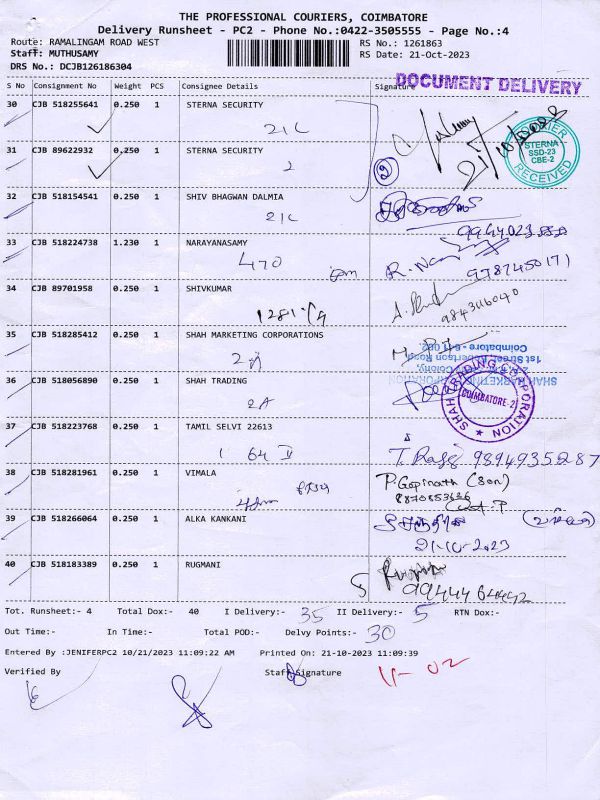 THE PROFESSIONAL COURIERS, COIMBATORE
Delivery Runsheet - PC2 - Phone No.:0422-3505555 - Page No.:4
Route: RAMALINGAM ROAD WEST
Staff: MUTHUSAMY
DRS No.: DCJB126186304
RS No.: 1261863
RS Date: 21-Oct-2023
S No Consignment No Weight PCS Consignee Details Signature
DOCUMENT DELIVERY
30 CJB 518255641 0.250 1 STERNA SECURITY
21C
COURIER
STERNA
SSD-23
CBE-2
RECEIVED
31 CJB 89622932 0.250 1 STERNA SECURITY
2
2
32 CJB 518154541 0.250 1 SHIV BHAGWAN DALMIA
21C
33 CJB 518224738 1.230 1 NARAYANASAMY
470
9787450171
34 CJB 89701958 0.250 1 SHIVKUMAR
35 CJB 518285412 0.250 1 SHAH MARKETING CORPORATIONS
1st Street, Robertson Road,
36 CJB 518056890 0.250 1 SHAH TRADING
2A
SHAH TRADING CORPORATION
COIMBATORE-2
37 CJB 518223768 0.250 1 TAMIL SELVI 22613
64
9894935287
38 CJB 518281961 0.250 1 VIMALA
P. Gopinath (Son)
8870853636
39 CJB 518266064 0.250 1 ALKA KANKANI
21-10-2023
40 CJB 518183389 0.250 1 RUGMANI
9944464442
Tot. Runsheet:- 4 Total Dox:- 40 I Delivery:- 35 II Delivery:- 5 RTN Dox:-
Out Time:- In Time:- Total POD:- Delvy Points:- 30
Entered By :JENIFERPC2 10/21/2023 11:09:22 AM Printed On: 21-10-2023 11:09:39
Verified By Staff Signature